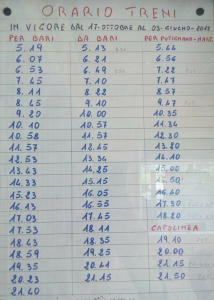 ORARIO TRENI
IN VIGORE DAL 17 OTTOBRE AL 03 GIUGNO 2013
PER BARI DA BARI PER PUTIGNANO-MART.
5.19 5.13 5.44
6.07 6.21 6.56
6.53 6.49 7.22
7.45 7.10 7.57
8.11 8.22 8.57
8.45 9.10 9.47
9.20 10.00 10.35
10.10 10.57 11.34
10.58 11.57 12.30
11.57 12.45 13.20
12.53 13.34 14.10
13.43 14.25 15.00
14.33 15.15
15.23 16.05 16.40
16.13 16.55 17.30
17.03 17.45 18.20
17.53 18.11 CAPOLINEA
18.43 18.35 19.10
18.59 19.25 20.00
19.35 20.41 21.15
20.23 21.15 21.50
21.40